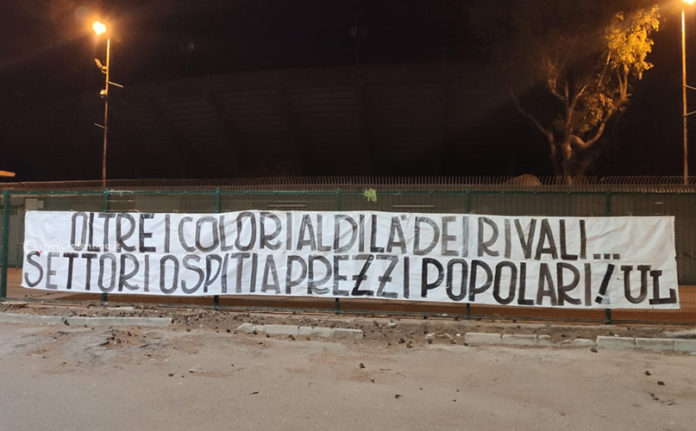 OLTRE I COLORI AL DI LÀ DEI RIVALI...
SETTORI OSPITI A PREZZI POPOLARI! UL